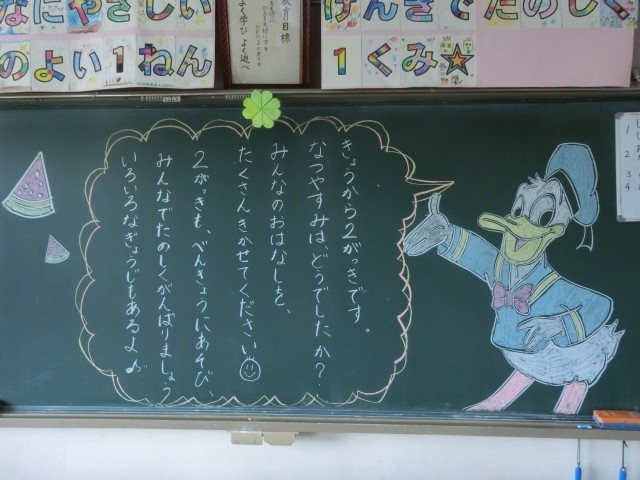 なにやさしい
のよい1ねん
教育目標
よく学び よく遊べ
げんきでたのしく
1くみ☆
きょうから2がっきです。
なつやすみは、どうでしたか？
みんなのおはなしを、
たくさんきかせてください
2がっきも、べんきょうにあそび、
みんなでたのしくがんばりましょう
いろいろなぎょうじもあるよ♪
1
2
3
4